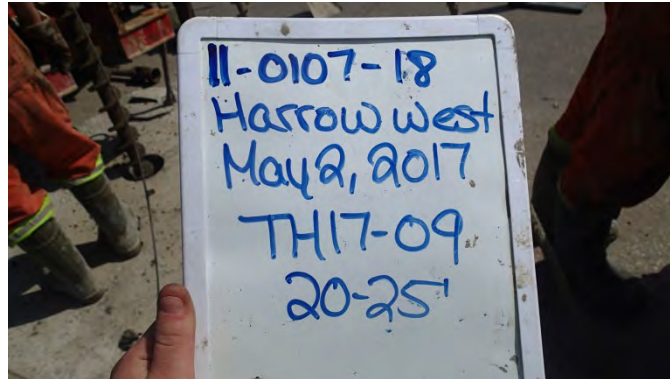 11-0107-18
Harrow west
May 2, 2017
TH17-09
20-25'